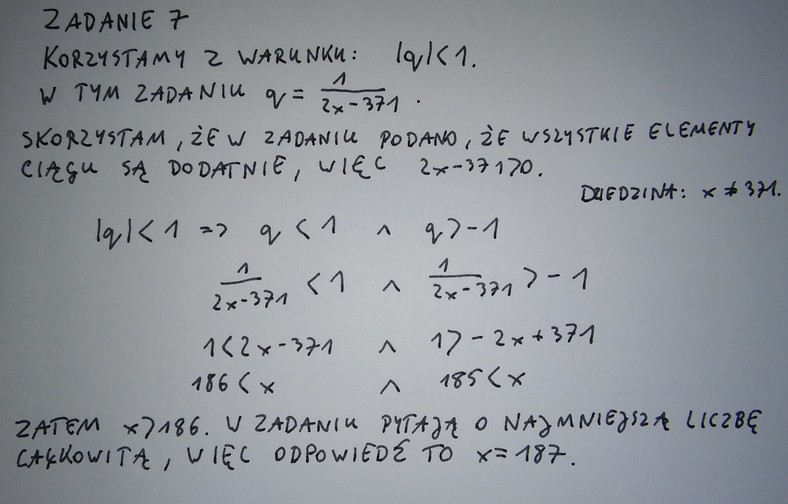 ZADANIE 7
KORZYSTAMY Z WARUNKU: |q|<1.
W TYM ZADANIU q = 1/(2x-371).
SKORZYSTAM, ŻE W ZADANIU PODANO, ŻE WSZYSTKIE ELEMENTY
CIĄGU SĄ DODATNIE, WIĘC 2x-371>0.
DZIEDZINA: x ≠ 371.
|q|<1 => q<1 ∧ q>-1
1/(2x-371) < 1 ∧ 1/(2x-371) > -1
1<2x-371 ∧ 1>-2x+371
186<x ∧ 185<x
ZATEM x>186. W ZADANIU PYTAJĄ O NAJMNIEJSZĄ LICZBĘ
CAŁKOWITĄ, WIĘC ODPOWIEDŹ TO x=187.